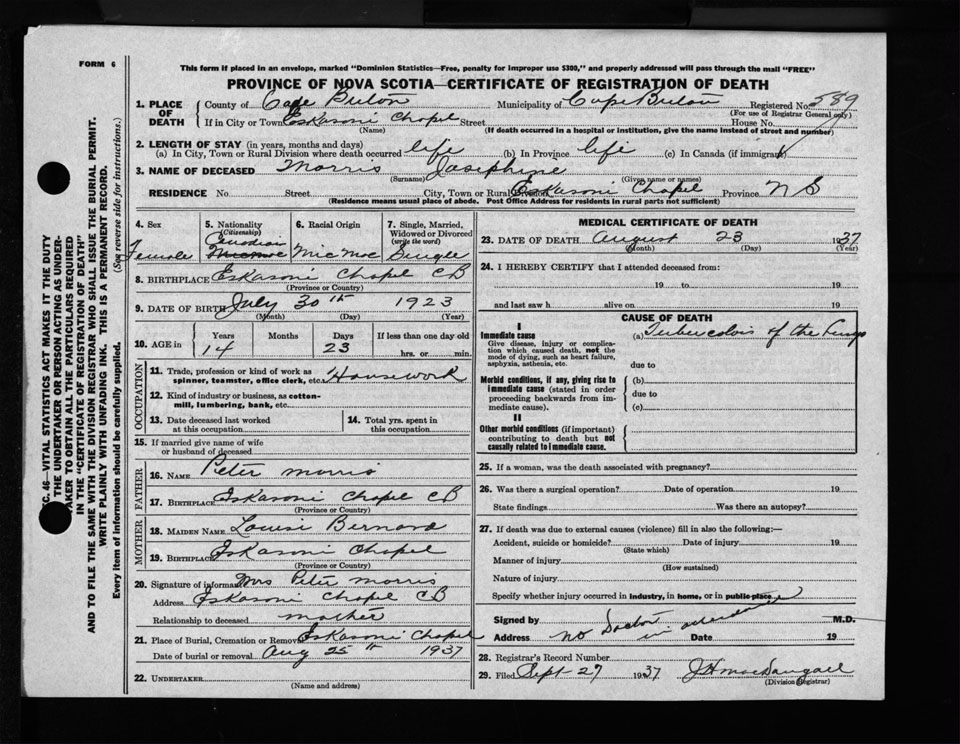 FORM 6
This form if placed in an envelope, marked "Dominion Statistics—Free, penalty for improper use $300," and properly addressed will pass through the mail "FREE"
PROVINCE OF NOVA SCOTIA—CERTIFICATE OF REGISTRATION OF DEATH
1. PLACE OF DEATH County of Cape Breton Municipality of Cape Breton Registered No. 589
(For use of Registrar General only)
If in City or Town Eskasoni Chapel Street House No.
(Name) (If death occurred in a hospital or institution, give the name instead of street and number)
2. LENGTH OF STAY (in years, months and days)
(a) In City, Town or Rural Division where death occurred life (b) In Province life (c) In Canada (if immigrant)
3. NAME OF DECEASED Morris Josephine
(Surname) (Given name or names)
RESIDENCE No. Street City, Town or Rural Division Eskasoni Chapel Province N S
(Residence means usual place of abode. Post Office Address for residents in rural parts not sufficient)
4. Sex 5. Nationality (Citizenship) 6. Racial Origin 7. Single, Married, Widowed or Divorced (write the word)
Female Canadian Micmac Mic Mac Single
8. BIRTHPLACE Eskasoni Chapel C B
(Province or Country)
9. DATE OF BIRTH July 30th 1923
(Month) (Day) (Year)
10. AGE in Years Months Days If less than one day old
14 23 hrs. or min.
OCCUPATION
11. Trade, profession or kind of work as spinner, teamster, office clerk, etc. Housework
12. Kind of industry or business, as cotton-mill, lumbering, bank, etc.
13. Date deceased last worked at this occupation 14. Total yrs. spent in this occupation
15. If married give name of wife or husband of deceased
FATHER
16. NAME Peter Morris
17. BIRTHPLACE Eskasoni Chapel C B
(Province or Country)
MOTHER
18. MAIDEN NAME Louisi Bernard
19. BIRTHPLACE Eskasoni Chapel
(Province or Country)
20. Signature of informant Mrs Peter Morris
Address Eskasoni Chapel C B
Relationship to deceased mother
21. Place of Burial, Cremation or Removal Eskasoni Chapel
Date of burial or removal Aug 25th 1937
22. UNDERTAKER
(Name and address)
MEDICAL CERTIFICATE OF DEATH
23. DATE OF DEATH August 23 1937
(Month) (Day) (Year)
24. I HEREBY CERTIFY that I attended deceased from:
19 to 19
and last saw h alive on 19
CAUSE OF DEATH
I
Immediate cause (a) Tuberculois of the Lungs
Give disease, injury or complication which caused death, not the mode of dying, such as heart failure, asphyxia, asthenia, etc. due to
Morbid conditions, if any, giving rise to immediate cause (stated in order proceeding backwards from immediate cause). (b)
due to
(c)
II
Other morbid conditions (if important) contributing to death but not causally related to immediate cause.
25. If a woman, was the death associated with pregnancy?
26. Was there a surgical operation? Date of operation 19
State findings Was there an autopsy?
27. If death was due to external causes (violence) fill in also the following:—
Accident, suicide or homicide? Date of injury 19
(State which)
Manner of injury
(How sustained)
Nature of injury
Specify whether injury occurred in industry, in home, or in public place
Signed by M.D.
Address no Doctor in attendance Date 19
28. Registrar's Record Number
29. Filed Sept 27 1937 J H MacDougall
(Division Registrar)
C. 46—VITAL STATISTICS ACT MAKES IT THE DUTY
THE UNDERTAKER OR PERSON ACTING AS UNDER-
TAKER TO OBTAIN ALL THE PARTICULARS REQUIRED
IN THE "CERTIFICATE OF REGISTRATION OF DEATH"
AND TO FILE THE SAME WITH THE DIVISION REGISTRAR WHO SHALL ISSUE THE BURIAL PERMIT.
WRITE PLAINLY WITH UNFADING INK. THIS IS A PERMANENT RECORD.
Every item of information should be carefully supplied. (See reverse side for instructions.)